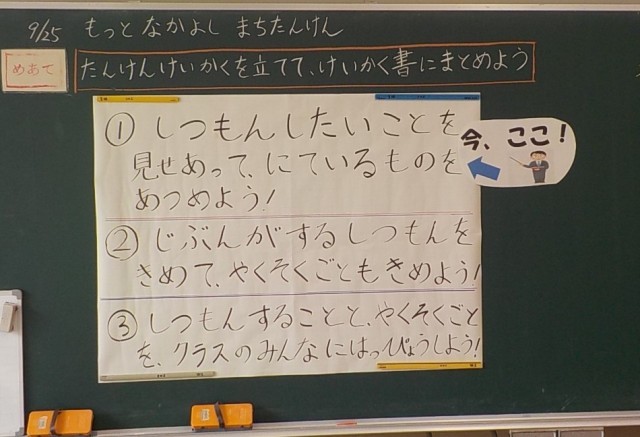 9/25 もっと なかよし まちたんけん
めあて
たんけんけいかくを立てて、けいかく書にまとめよう
① しつもんしたいことを
見せあって、にているものを
あつめよう!
今、ここ!
② じぶんがするしつもんを
きめて、やくそくごともきめよう!
③ しつもんすることと、やくそくごと
を、クラスのみんなにはっぴょうしよう!